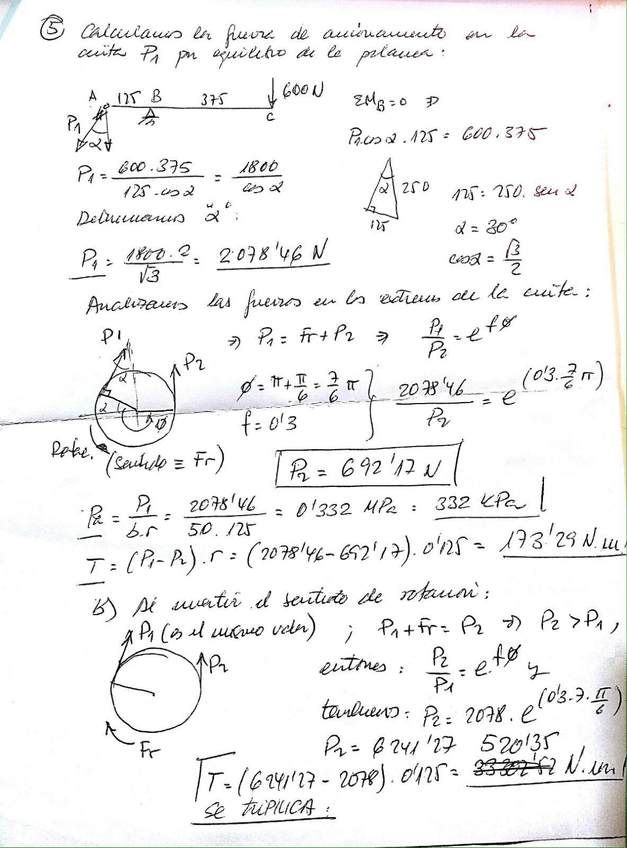 5 Calculamos la fuerza de accionamiento en la
cinta P1 por equilibrio de la palanca:
A 125 B 375 600 N
P1 α C
ΣM_B = 0 ⇒
P1 cos α · 125 = 600 · 375
P1 = 600 · 375 / 125 · cos α = 1800 / cos α
α 250 125
125 = 250 · sen α
Determinamos "α":
α = 30°
P1 = 1800 · 2 / √3 = 2·078'46 N
cos α = √3 / 2
Analizamos las fuerzas en los extremos de la cinta:
P1 α P2 α φ
⇒ P1 = Fr + P2 ⇒ P1 / P2 = e^fφ
φ = π + π/6 = 7/6 π
f = 0'3
2078'46 / P2 = e^(0'3 · 7/6 π)
(Sentido ≡ Fr)
P2 = 692'17 N
Pa = P1 / b·r = 2078'46 / 50 · 125 = 0'332 MPa = 332 KPa
T = (P1 - P2) · r = (2078'46 - 692'17) · 0'125 = 173'29 N·m
b) Al invertir el sentido de rotación:
P1 (es el mismo valor) ; P1 + Fr = P2 ⇒ P2 > P1,
P2
entonces: P2 / P1 = e^fφ y
tendremos: P2 = 2078 · e^(0'3 · 7 · π/6)
Fr
P2 = 6241'27 520'35
T = (6241'27 - 2078) · 0'125 = N·m
SE TRIPLICA.